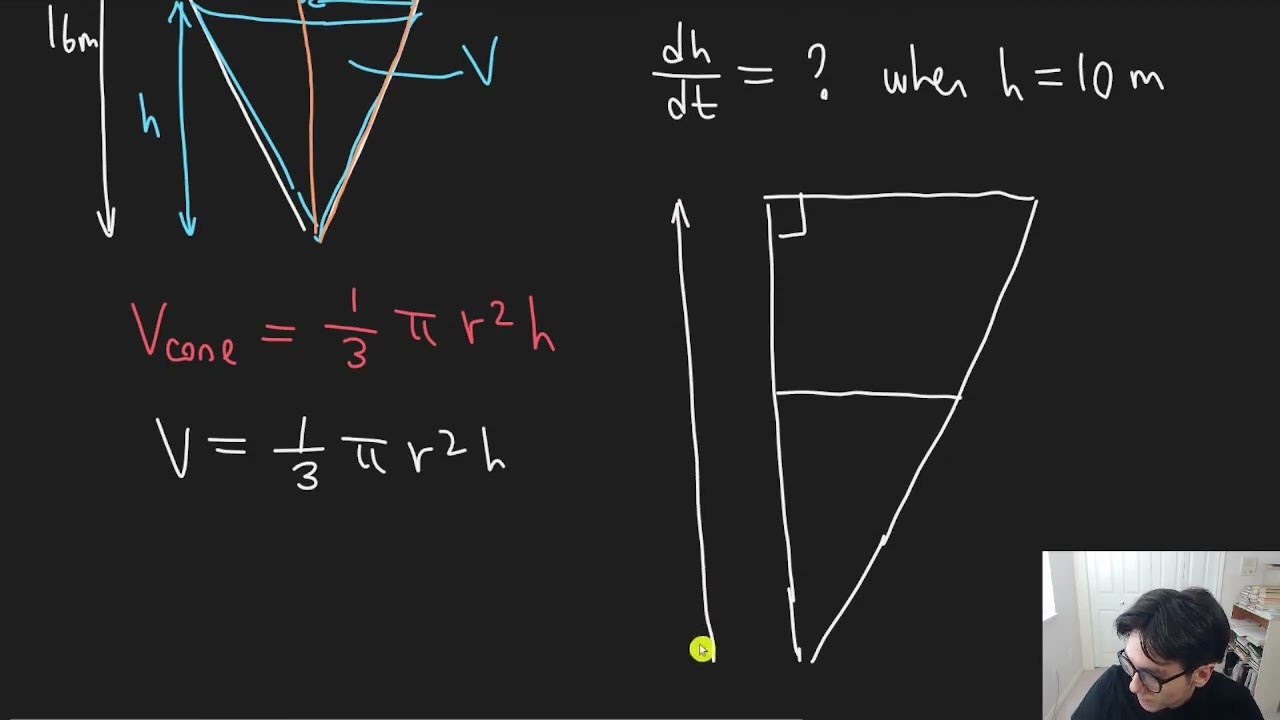 16m
h
V
dh/dt = ? when h = 10 m
Vcone = 1/3 π r² h
V = 1/3 π r² h